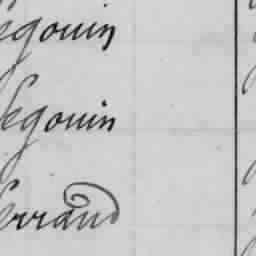 egouin
egouin
errand